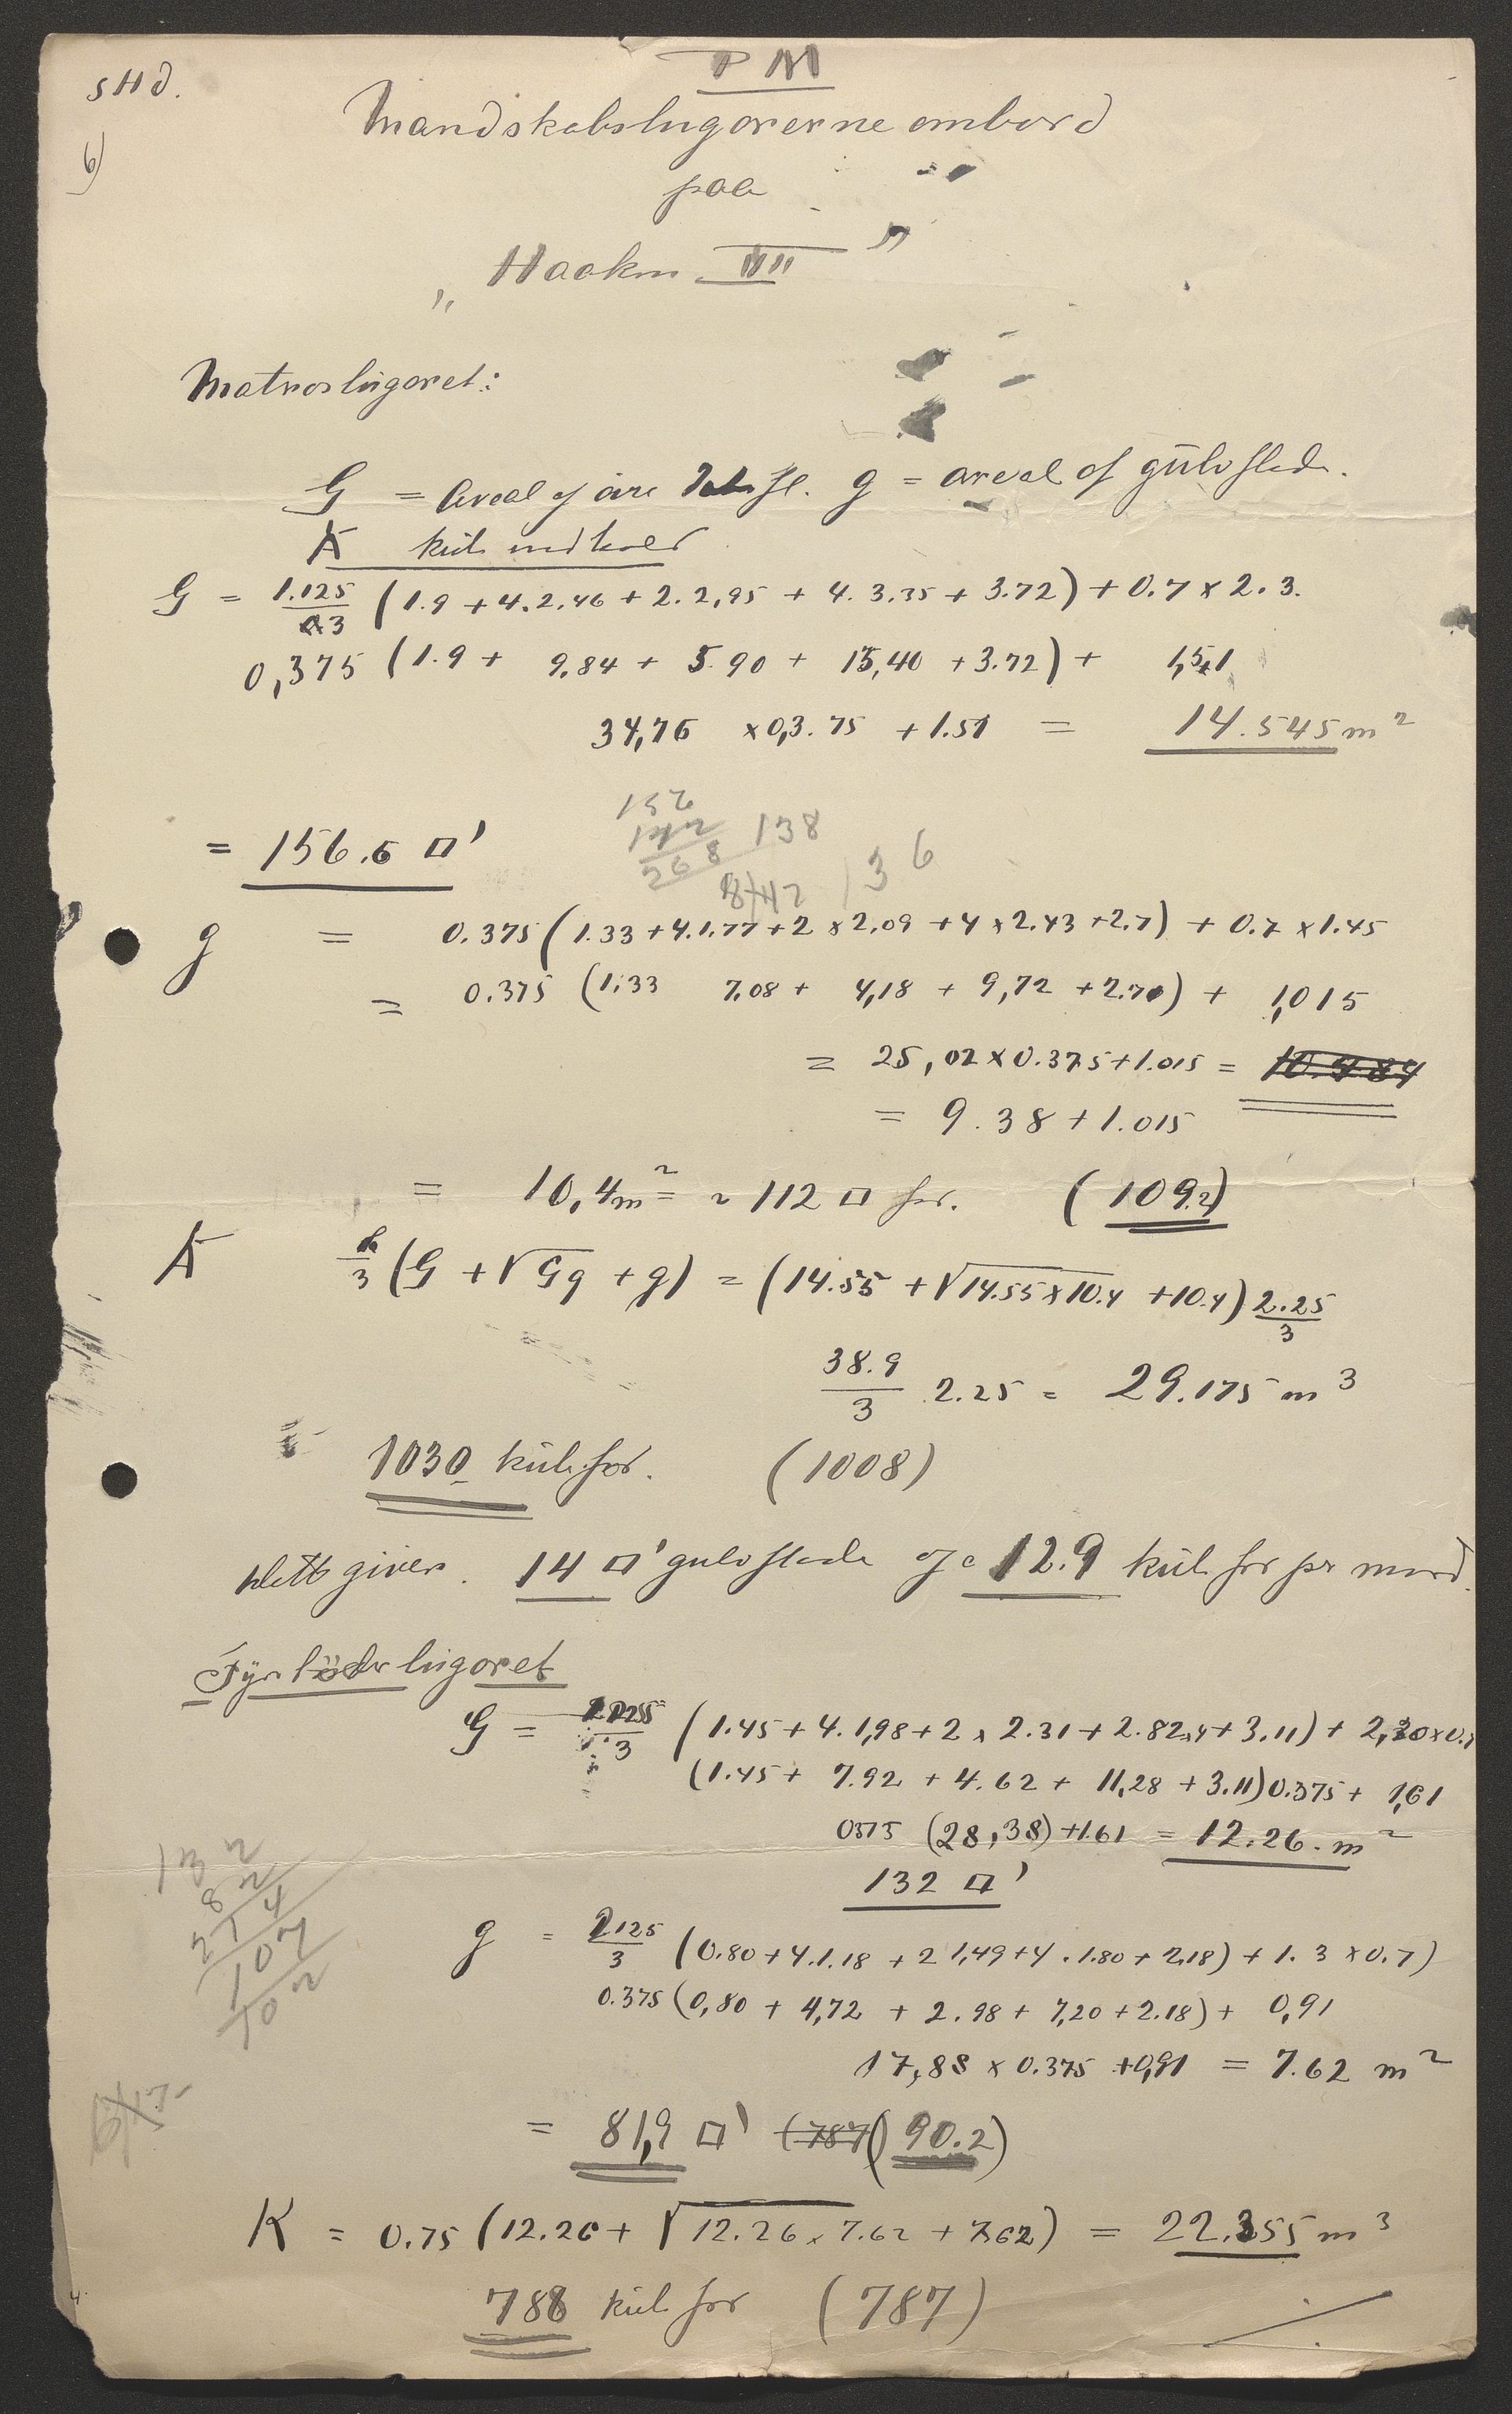 S H d.
6)
P M
Mandskabslugarerne ombord
paa
„Haakon VII"
Matroslugaret:
G = Areal af øvre fl. g = areal af gülvflade.
K kub indhold
G = 1.125/3 (1.9 + 4. 2.46 + 2. 2,95 + 4. 3.35 + 3.72) + 0.7 x 2.3.
0,375 (1.9 + 9.84 + 5.90 + 13,40 + 3.72) + 1,51
34,76 x 0,3.75 + 1.51 = 14.545 m²
= 156.5 □'
156
142
268 138
8/42 136
g = 0.375 (1.33 + 4.1.77 + 2 x 2.09 + 4 x 2.43 + 2.7) + 0.7 x 1.45
= 0.375 (1.33 7.08 + 4,18 + 9,72 + 2.70) + 1,015
= 25,02 x 0.375 + 1.015 = 10.484
= 9.38 + 1.015
= 10,4 m² = ~ 112 □ for. (109.2)
K h/3 (G + √Gg + g) = (14.55 + √14.55 x 10.4 + 10.4) 2.25/3
38.9/3 . 2.25 = 29.175 m³
1030 küb. for. (1008)
Dette giver. 14 □' gulvflade og 12.9 küb for pr mand.
Fyrböderlugaret
G = 1.125/3 (1.45 + 4. 1,98 + 2 x 2.31 + 2.82 x 4 + 3.11) + 2,30 x 0.7
(1.45 + 7.92 + 4.62 + 11,28 + 3.11) 0.375 + 1,61
0375 (28,38) + 1.61 = 12.26. m²
132 □'
132
82
214
107
102
g = 1.125/3 (0.80 + 4.1.18 + 2 1,49 + 4 . 1.80 + 2.18) + 1.3 x 0.7)
0.375 (0,80 + 4,72 + 2.98 + 7,20 + 2.18) + 0,91
17,88 x 0.375 + 0,91 = 7.62 m²
= 81,9 □' (787) (90.2)
K = 0.75 (12.26 + √12.26 x 7.62 + 7.62) = 22.355 m³
788 küb for (787)